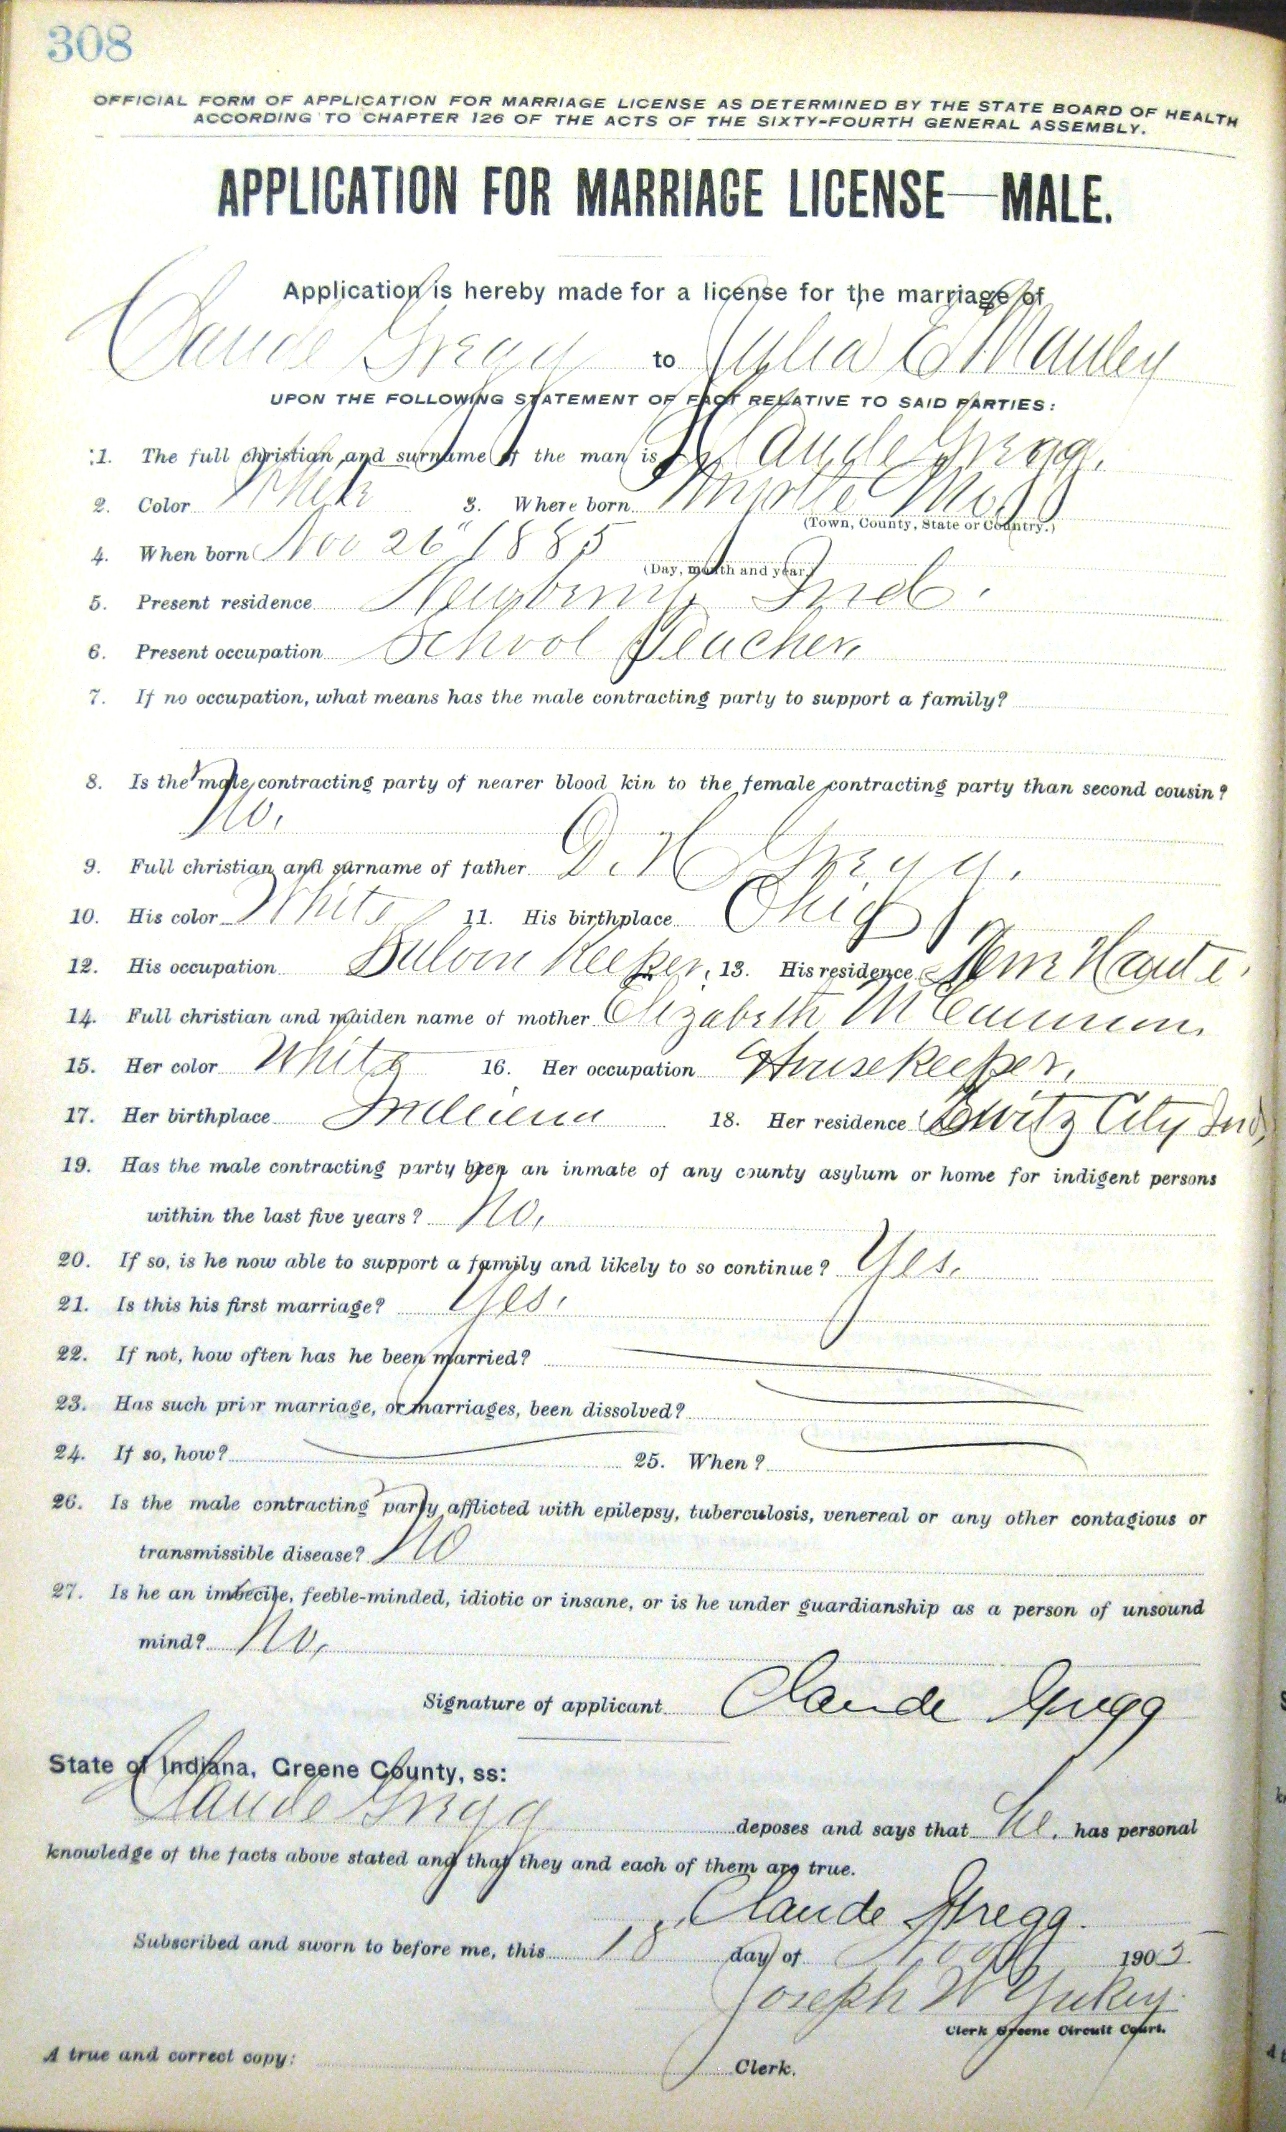 308
OFFICIAL FORM OF APPLICATION FOR MARRIAGE LICENSE AS DETERMINED BY THE STATE BOARD OF HEALTH
ACCORDING TO CHAPTER 126 OF THE ACTS OF THE SIXTY-FOURTH GENERAL ASSEMBLY.
APPLICATION FOR MARRIAGE LICENSE—MALE.
Application is hereby made for a license for the marriage of
Claude Gregg to Julia E Manley
UPON THE FOLLOWING STATEMENT OF FACT RELATIVE TO SAID PARTIES:
1. The full christian and surname of the man is Claude Gregg.
2. Color White 3. Where born Myrtle Miss
(Town, County, State or Country.)
4. When born Nov 26" 1885
(Day, month and year.)
5. Present residence Newberry, Ind.
6. Present occupation School Teacher,
7. If no occupation, what means has the male contracting party to support a family?
8. Is the male contracting party of nearer blood kin to the female contracting party than second cousin?
No.
9. Full christian and surname of father D. H Gregg.
10. His color White 11. His birthplace Ohio
12. His occupation Saloon Keeper, 13. His residence Terre Haute,
14. Full christian and maiden name of mother Elizabeth
15. Her color White 16. Her occupation Housekeeper,
17. Her birthplace Indiana 18. Her residence Switz City Ind,
19. Has the male contracting party been an inmate of any county asylum or home for indigent persons
within the last five years? No,
20. If so, is he now able to support a family and likely to so continue? Yes,
21. Is this his first marriage? Yes,
22. If not, how often has he been married?
23. Has such prior marriage, or marriages, been dissolved?
24. If so, how? 25. When?
26. Is the male contracting party afflicted with epilepsy, tuberculosis, venereal or any other contagious or
transmissible disease? No
27. Is he an imbecile, feeble-minded, idiotic or insane, or is he under guardianship as a person of unsound
mind? No,
Signature of applicant Claude Gregg
State of Indiana, Greene County, ss:
Claude Gregg deposes and says that he. has personal
knowledge of the facts above stated and that they and each of them are true.
Claude Gregg.
Subscribed and sworn to before me, this 18 day of 1905
Joseph W Yakey.
Clerk Greene Circuit Court.
A true and correct copy: Clerk.